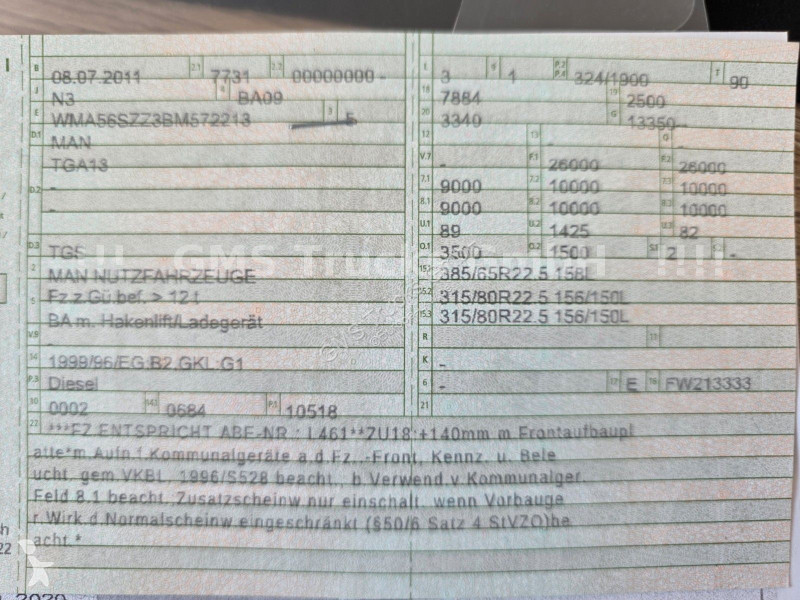 B 08.07.2011 2.1 7731 2.2 00000000 -
J N3 4 BA09
E WMA56SZZ3BM572213 3 5
D.1 MAN
TGA13
D.2 -
-
D.3 TGS
2 MAN NUTZFAHRZEUGE
5 Fz.z.Gü.bef. > 12 t
BA m. Hakenlift/Ladegerät
V.9 -
14 1999/96/EG B2,GKL:G1
P.3 Diesel
10 0002 14.1 0684 P.1 10518
L 3 9 1 P.2 P.4 324/1900 T 90
18 7884 19 2500
20 3340 G 13350 -
12 - 13 - Q -
V.7 - F.1 26000 F.2 26000
7.1 9000 7.2 10000 7.3 10000
8.1 9000 8.2 10000 8.3 10000
U.1 89 U.2 1425 U.3 82
O.1 3500 O.2 1500 S.1 2 S.2 -
15.1 385/65R22.5 158L
15.2 315/80R22.5 156/150L
15.3 315/80R22.5 156/150L
R - 11 -
K -
6 - 17 E 16 FW213333
21
22 ***FZ.ENTSPRICHT ABE-NR.: L461**ZU18:+140mm m Frontaufbaupl
atte*m.Aufn.f.Kommunalgeräte a.d.Fz.-Front, Kennz. u. Bele
ucht. gem.VKBL. 1996/S528 beacht., b Verwend v Kommunalger.
Feld 8.1 beacht. Zusatzscheinw nur einschalt. wenn Vorbauge
r.Wirk d.Normalscheinw eingeschränkt (§50/6 Satz 4 StVZO)be
acht.*
!! GMS Trucks GmbH !!!!
2020